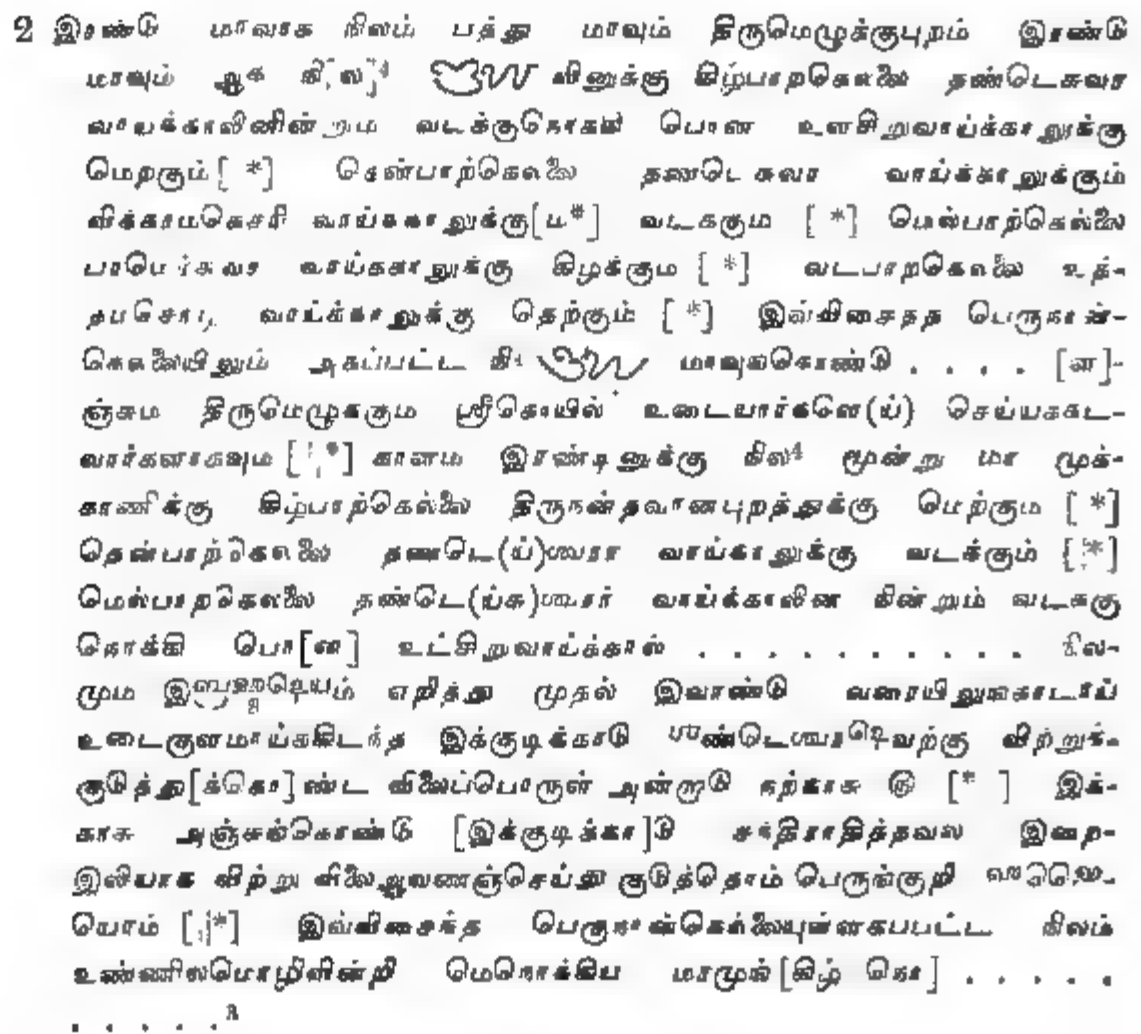 2 இரண்டு மாவாக நிலம் பத்து மாவும் திருமெழுக்குபுறம் இரண்டு
மாவும் ஆக வினுக்கு கிழ்பாறகெலலை தண்டெசுவர
வாயக்காலினின்றும வடக்குநொகமி பொன உளசிறுவாய்க்காலுக்கு
மெறகும் [ *] தென்பாற்கெலலை தணடெசுவர வாய்க்காலுக்கும்
விக்காமகெசரி வாய்ககாலுக்கு[ம*] வடககும [ *] மெல்பாற்கெல்லை
வாய்ககாலுக்கு கிழக்கும [ *] வடபாறகெலலை உத்-
வாய்க்காலுக்கு தெற்கும் [ *] இவ்விசைதத பெருநான்-
கெலலையிலும் அகப்பட்ட மாவுலகொண்டு . . . . [ன]-
ஞ்சும திருமெழுககும ஸ்ரீகொயில் உடையார்களெ(ய்) செய்யககட-
வார்களாகவும [।*] கானம இரண்டினுக்கு நில⁴ மூன்று மா முக்-
காணிக்கு கிழ்பாற்கெல்லை திருநன்தவானபுறத்துக்கு மெற்கும [ *]
தென்பாற்கெலலை தணடெ(ய்)ஶ்வரா வாய்காலுக்கு வடக்கும் [।*]
மெல்பாறகெலலை தண்டெ(ய்சு)ஶ்வரர் வாய்க்காலின நின்றும் வடககு
நொக்கி பொ[ன] உட்சிறுவாய்க்கால் . . . . . . . . . . நில-
மும எறித்து முதல் இவாண்டு வரையிலுஙகாடாய்
உடைகுளமாய்ககிடந்த இக்குடிக்காடு விற்றுக்-
குடுத்து[க்கொ]ண்ட விலைப்பொருள் அன்றாடு நற்காசு ௫ [* ] இக்-
காசு அஞ்சுங்கொண்டு [இக்குடிக்கா]டு சந்திராதித்தவல இறை-
இலியாக விற்று விலைஆவணஞ்செய்து குடுத்தொம் பெருங்குறி ஸபை-
யொம் [।*] இவ்விசைந்த பெருநான்கெல்லையுள்ளகபபட்ட நிலம்
உண்ணிலமொழிவின்றி மெநொக்கிய மரமுங்[கிழ் நொ] . . . . .
. . . . .³